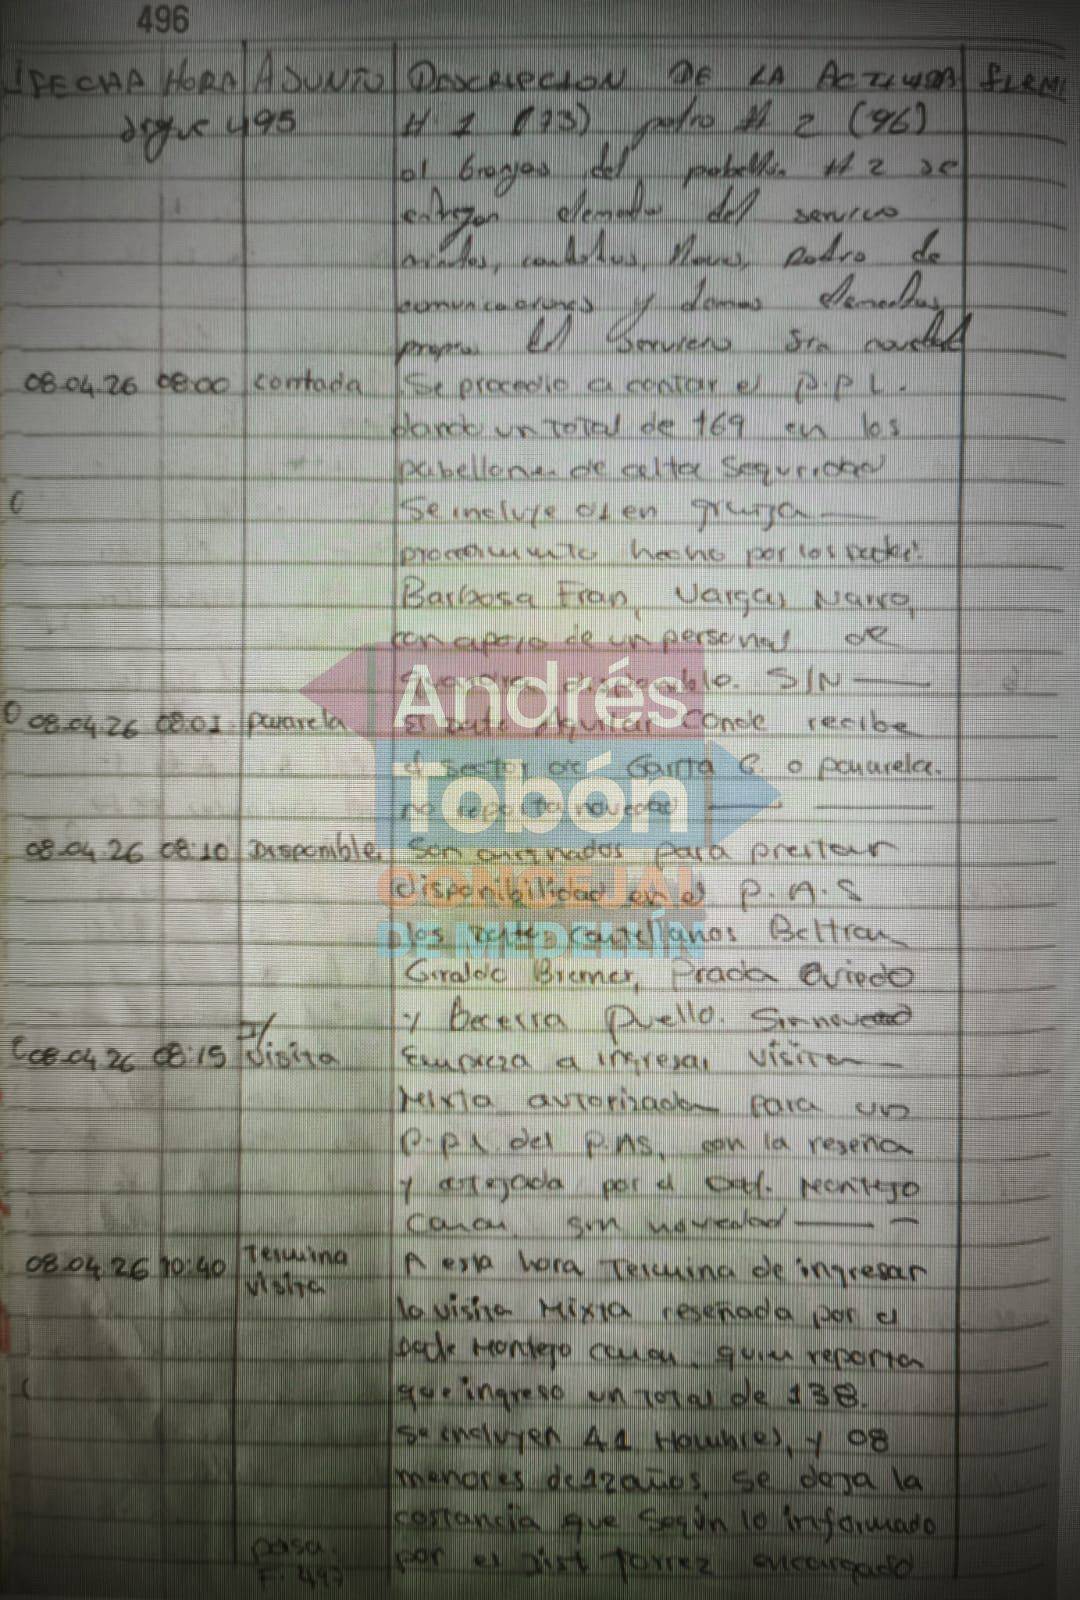 496
FECHA HORA ASUNTO DESCRIPCION DE LA ACTIVIDA FIRM
sigue 495 # 1 (73) patio # 2 (96)
al del pabellon # 2 se
entregan elementos del servicio
candados, llaves, radio de
comunicaciones y demas elementos
propios del servicio sin novedad
08.04.26 08:00 contada Se procedio a contar el P.P.L.
dando un total de 169 en los
pabellones de alta seguridad
Se incluye 01 en granja
procedimiento hecho por los
Barbosa Fran, Vargas Narro,
con apoyo de un personal de
disponible. SIN
08.04.26 08:01 pasarela El Aguilar Conde recibe
el sector de Garita 6 o pasarela.
no reporta novedad
08.04.26 08:10 Disponible. Son asignados para prestar
disponibilidad en el P.A.S
los castellanos Beltran
Giraldo Bremer, Prada Oviedo
y Becerra Puello. Sin novedad
08.04.26 08:15 I/ Visita Empieza a ingresar visita
Mixta autorizada para un
P.P.L del P.AS, con la reseña
y por el Montejo
sin novedad
08.04.26 10:40 Termina visita A esta hora Termina de ingresar
la visita Mixta reseñada por el
Montejo quien reporta
que ingreso un total de 138.
Se incluyen 41 Hombres, y 08
menores de 12 años, se deja la
costancia que según lo informado
por el Torrez encargado
pasa F. 497
Andrés
Tobón
CONCEJAL
DE MEDELLÍN